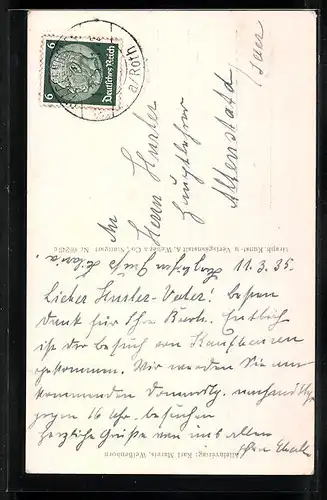 6
Deutsches Reich
6
a/Roth
An
Herrn Hurler
Hauptlehrer
Altenstadt
Graph. Kunst- u. Verlagsanstalt A. Weber & Co., Stuttgart Nr.
11.3.35.
Lieber Hurler-Vater! Besten
Dank für Ihre Karte. Endlich
ist der Besuch von Kaufbeuren
gekommen. Wir werden Sie am
kommenden Donnerstg. nachmittg
gegen 16 Uhr besuchen
herzliche Grüße von uns allen
Ihre
Alleinvertrieb: Karl Maris, Weißenhorn